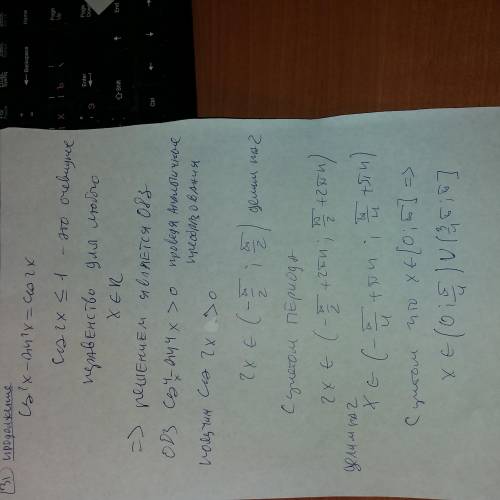 31 продолжение
cos²x - sin²x = cos2x
cos2x ≤ 1 - это очевидное
неравенство для любого
x ∈ R
=> решением является ОВЗ
ОВЗ cos⁴x - sin⁴x > 0 проведя аналогичные
преобразования
получим cos2x > 0
2x ∈ (-π/2; π/2) делим на 2
С учетом периода
2x ∈ (-π/2 + 2πn; π/2 + 2πn)
делим на 2
x ∈ (-π/4 + πn; π/4 + πn)
С учетом что x ∈ [0; π] =>
x ∈ (0; π/4) ∪ (3/4 π; π]